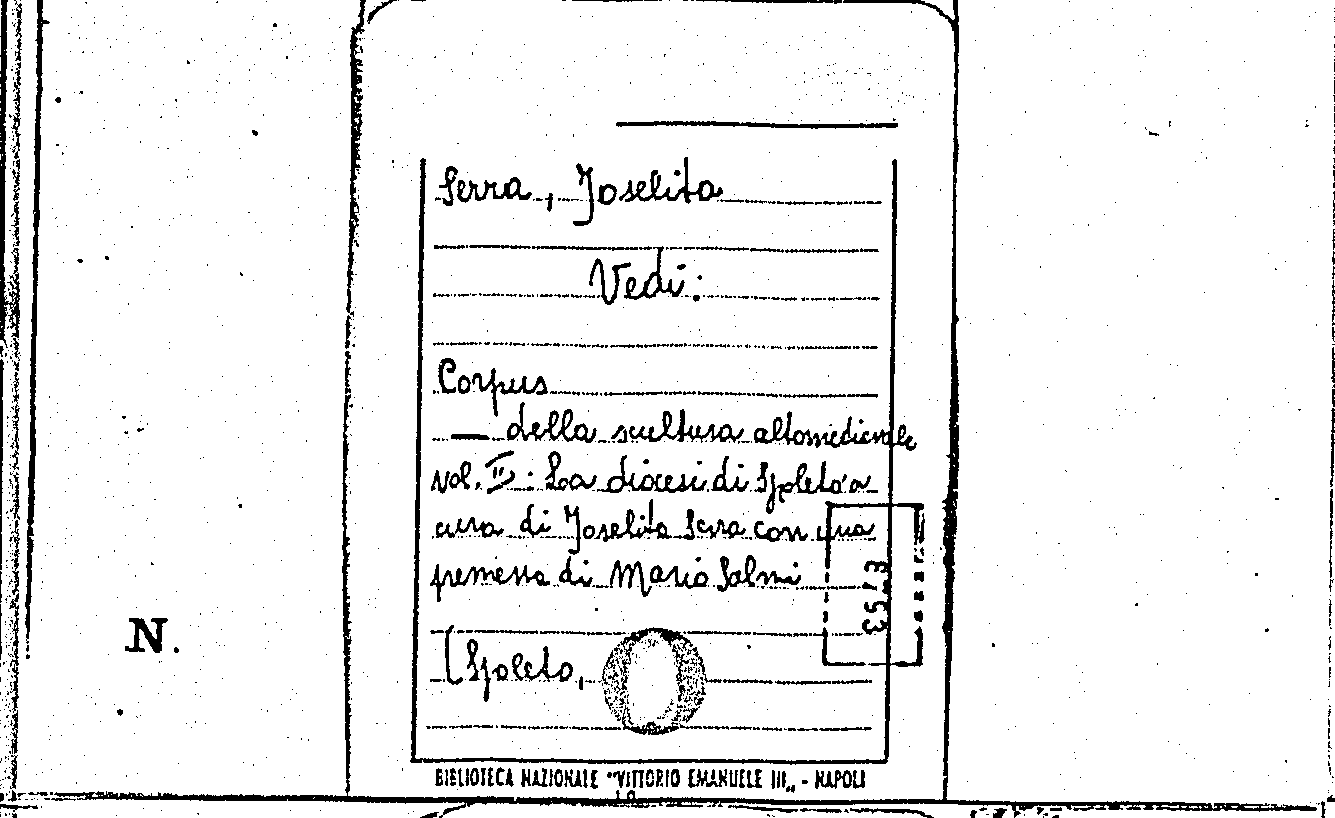 Serra, Joselita
Vedi:
Corpus
— della scultura altomedievale
vol. II: La diocesi di Spoleto a
cura di Joselita Serra con una
premessa di Mario Salmi
(Spoleto,
N.
BIBLIOTECA NAZIONALE "VITTORIO EMANUELE III„ - NAPOLI